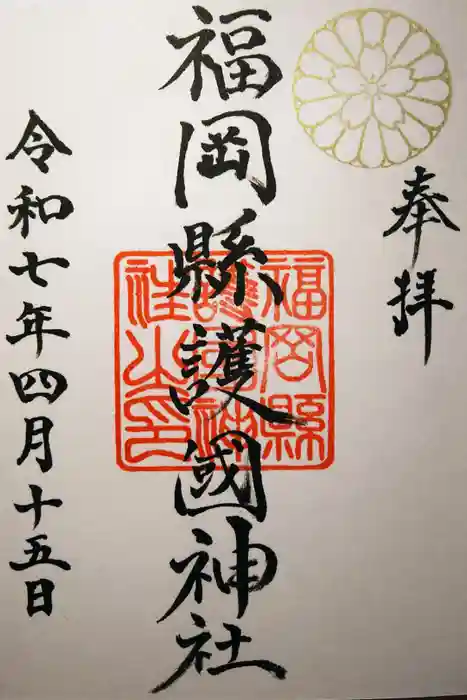 奉拝
福岡縣護國神社
令和七年四月十五日
福岡縣
護國神
社之印